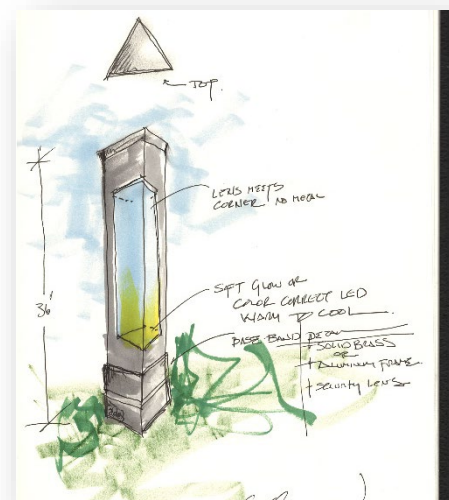 TOP.
LENS MEETS
CORNER NO METAL
36"
SOFT GLOW OR
COLOR CORRECT LED
WARM TO COOL.
BASE BAND DETAIL
+ SOLID BRASS
OR
+ ALUMINUM FRAME
+ SECURITY LENS